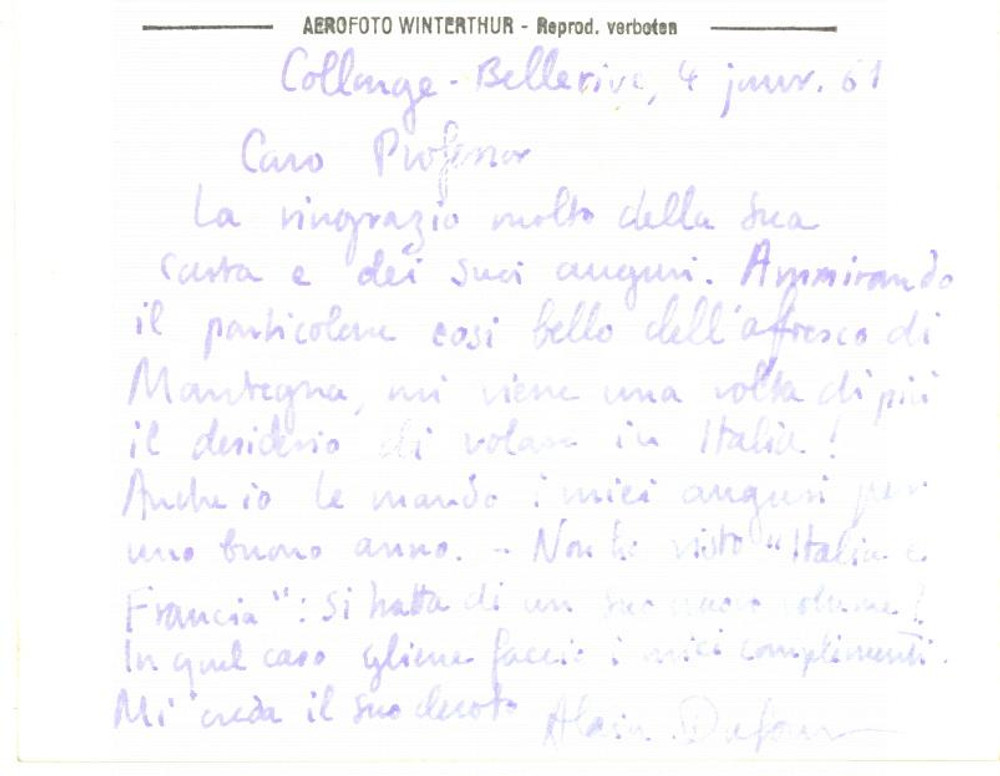 AEROFOTO WINTERTHUR - Reprod. verboten
Collonge-Bellerive, 4 janv. 61
Caro Professor
La ringrazio molto della Sua
carta e dei suoi auguri. Ammirando
il particolare così bello dell'afresco di
Mantegna, mi viene una volta di più
il desiderio di volare in Italia!
Anche io le mando i miei auguri per
uno buono anno. - Non ho visto "Italia e
Francia": si tratta di un suo nuovo volume?
In quel caso gliene faccio i miei complimenti.
Mi creda il suo devoto Alain Dufour